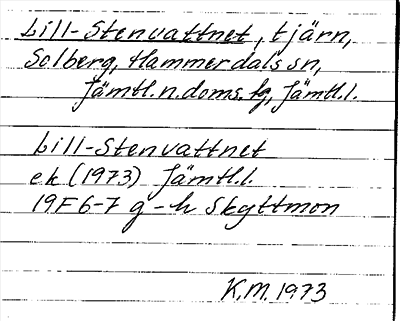 Lill-Stenvattnet, tjärn,
Solberg, Hammerdals sn,
Jämtl.n.doms.fg, Jämtl.l.
Lill-Stenvattnet
ek (1973) Jämtl.l.
19F6-7 g-h Skyttmon
K.M. 1973